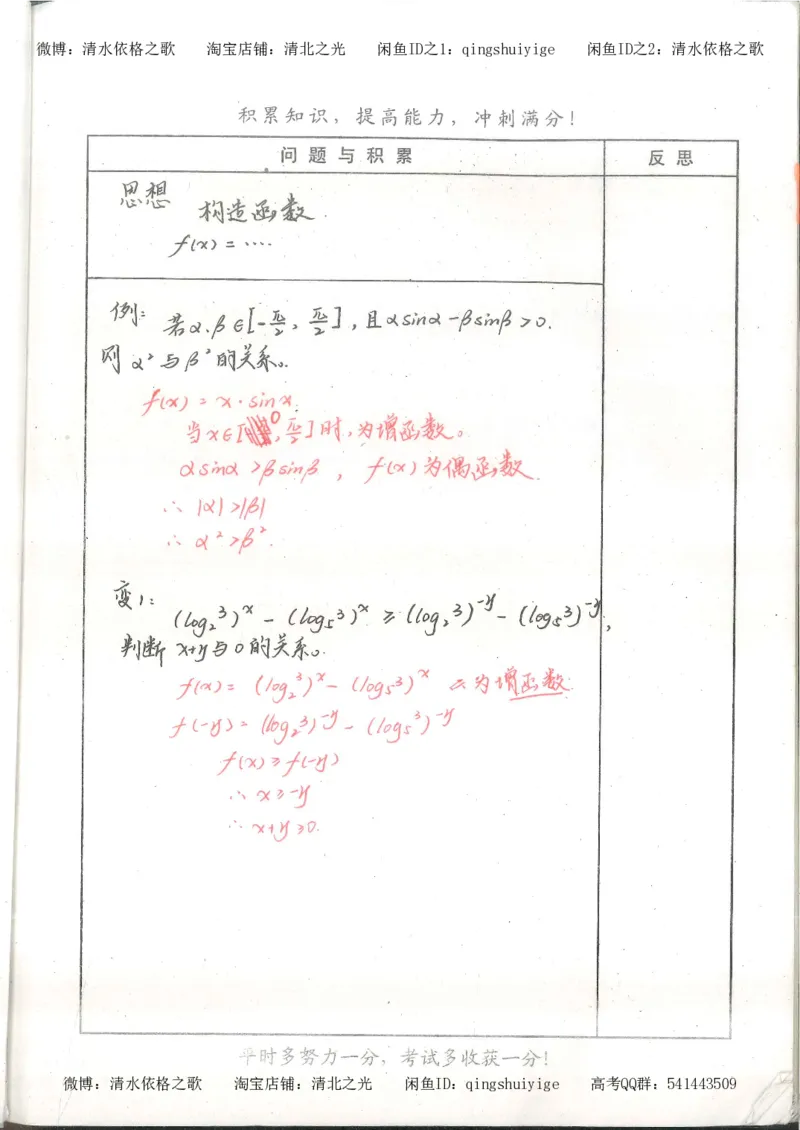 微博：清水依格之歌 淘宝店铺：清北之光 闲鱼ID之1：qingshuiyige 闲鱼ID之2：清水依格之歌
积累知识，提高能力，冲刺满分！
问题与积累 反思
思想 构造函数
f(x) = ····
例：若α.β∈[-π/2, π/2]，且αsinα-βsinβ>0.
则α²与β²的关系。
f(x) = x·sinx.
当x∈[0, π/2]时，为增函数。
αsinα>βsinβ，f(x)为偶函数.
∴ |α|>|β|
∴ α²>β².
变1：(log₂3)^x - (log₅3)^x ≥ (log₂3)^-y - (log₅3)^-y，
判断x+y与0的关系。
f(x) = (log₂3)^x - (log₅3)^x 为增函数.
f(-y) = (log₂3)^-y - (log₅3)^-y
f(x) ≥ f(-y)
∴ x≥-y
∴ x+y≥0.
平时多努力一分，考试多收获一分！
微博：清水依格之歌 淘宝店铺：清北之光 闲鱼ID：qingshuiyige 高考QQ群：541443509